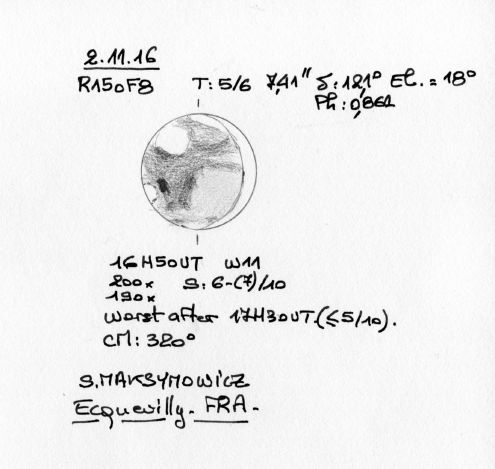 2.11.16
R150F8 T: 5/6 7,41" δ: 121° El. = 18°
Ph: 0,862
16H50UT W11
200x S: 6-(7)/10
190x
worst after 17H30UT. (≤5/10).
CM: 320°
S. MAKSYMOWICZ
Ecquevilly. FRA.